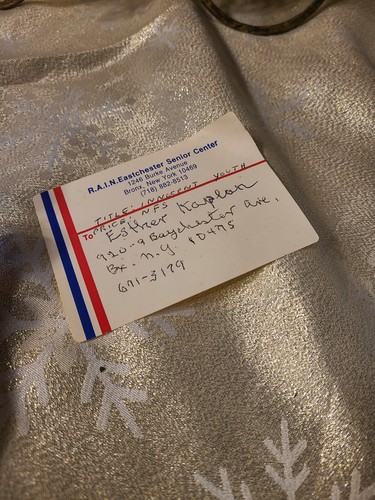 R.A.I.N.Eastchester Senior Center
1246 Burke Avenue
Bronx, New York 10469
(718) 882-8513
TITLE: INNOCENT YOUTH
PRICE: NFS
To Esther Kaplan
920-9 Baychester Ave,
Bx. N.Y. 10475
671-3179